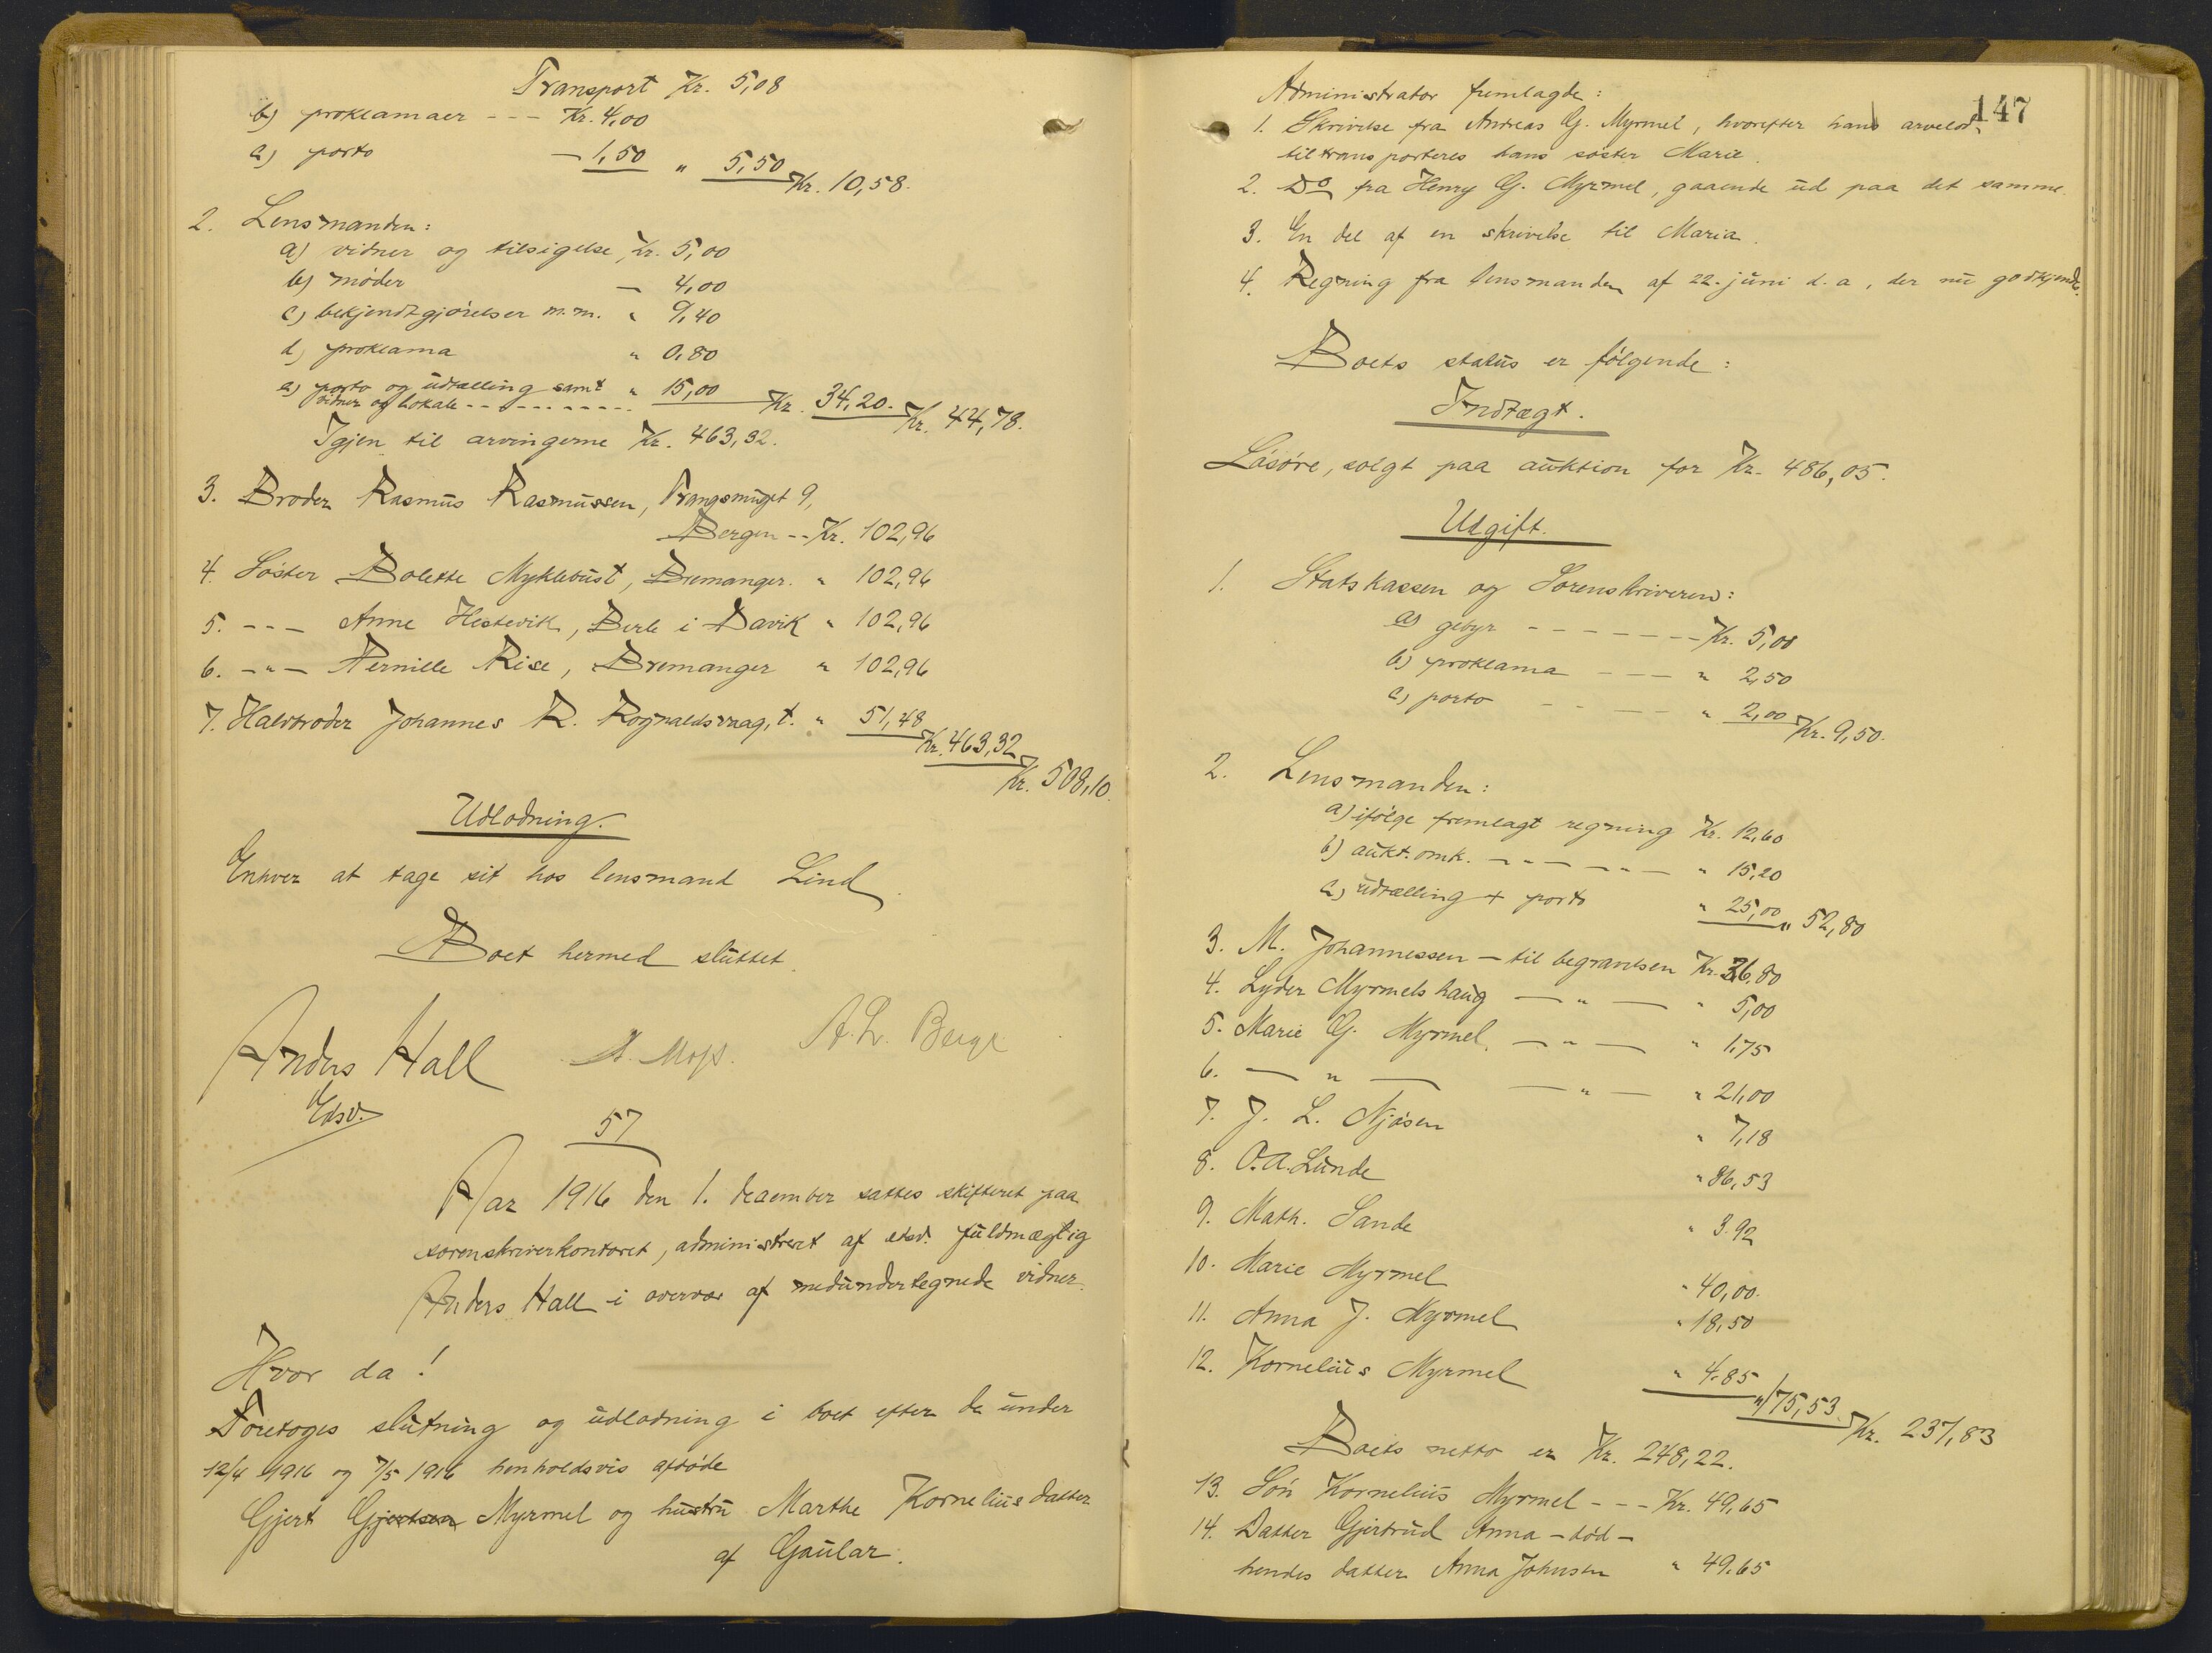 Transport Kr. 5,08
b) proklamaer --- Kr. 4,00
c) porto — 1,50 " 5,50 Kr. 10,58.
2. Lensmanden:
a) vidner og tilsigelse Kr. 5,00
b) møder — 4,00
c) bekjendtgjørelser m.m. " 9,40
d) proklama " 0,80
e) porto og udtælling samt " 15,00 Kr. 34,20. Kr. 44,78.
vidner og lokale ---------
Igjen til arvingerne Kr. 463,32.
3. Broder Rasmus Rasmussen, Trangsmuget 9,
Bergen -- Kr. 102,96
4. Søster Bolette Myklebust, Bremanger. " 102,96
5. --- Anne Hestevik, Berle i Davik " 102,96
6. -"- Pernille Rise, Bremanger " 102,96
7. Halvbroder Johannes R. Rognaldsvaag, t. " 51,48
Kr. 463,32
Kr. 508,10.
Udlodning.
Enhver at tage sit hos lensmand Lind.
Boet hermed sluttet.
Anders Hall
Edsv.
57
Aar 1916 den 1. december sattes skifteret paa
sorenskriverkontoret, administreret af edsv. fuldmægtig
Anders Hall i overvær af medundertegnede vidner.
Hvor da!
Foretoges slutning og udlodning i boet efter de under
12/4 1916 og 7/5 1916 henholdsvis afdøde
Gjert Gjertsen Myrmel og hustru Marthe Korneliusdatter
af Gaular.
147
Administrator fremlagde:
1. Skrivelse fra Andreas G. Myrmel, hvorefter hans arvelod
tiltransporteres hans søster Marie.
2. Do fra Henry G. Myrmel, gaaende ud paa det samme.
3. En del af en skrivelse til Maria.
4. Regning fra lensmanden af 22. juni d.a, der nu godkjendt.
Boets status er følgende:
Indtægt.
Løsøre, solgt paa auktion for Kr. 486,05.
Udgift.
1. Statskassen og Sorenskriveren:
a) gebyr ------- Kr. 5,00
b) proklama --- " 2,50
c) porto ---- " 2,00 Kr. 9,50.
2. Lensmanden:
a) ifølge fremlagt regning Kr. 12,60
b) aukt. omk. ------ " 15,20
c) udtælling + porto " 25,00 " 52,80
3. M. Johannessen — til begravelsen Kr. 36,80
4. Lyder Myrmelshaug — " — " 5,00
5. Marie G. Myrmel. — " — " 1,75
6. — " — — " — " 21,00
7. J. L. Njøsen " 7,18
8. O. A. Lunde " 36,53
9. Math. Sande " 3.92
10. Marie Myrmel " 40,00.
11. Anna J. Myrmel " 18,50
12. Kornelius Myrmel " 4.85
" 175,53 Kr. 237,83
Boets netto er Kr. 248,22.
13. Søn Kornelius Myrmel --- Kr. 49,65
14. Datter Gjertrud Anna - død -
hendes datter Anna Johnsen " 49.65